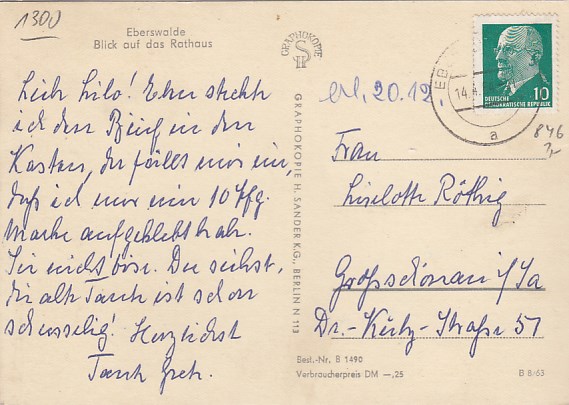 1300
Eberswalde
Blick auf das Rathaus
Lieb Lilo! Eben steckte
ich den Brief in den
Kasten, da fällt mir ein,
daß ich nur eine 10 Pfg.
Marke aufgeklebt hab.
Sei nicht böse. Du siehst,
die alte Tante ist schon
schusselig! Herzlichst
Tante Gret.
GRAPHOKOPIE
HS
GRAPHOKOPIE H. SANDER K.G., BERLIN N 113
erl. 20.12.
EB
14.4.
a
DEUTSCHE
DEMOKRATISCHE REPUBLIK
10
846
Frau
Liselotte Röthig
Großschönau i/Sa
Dr.-Külz-Straße 51
Best.-Nr. B 1490
Verbraucherpreis DM —,25
B 8/63